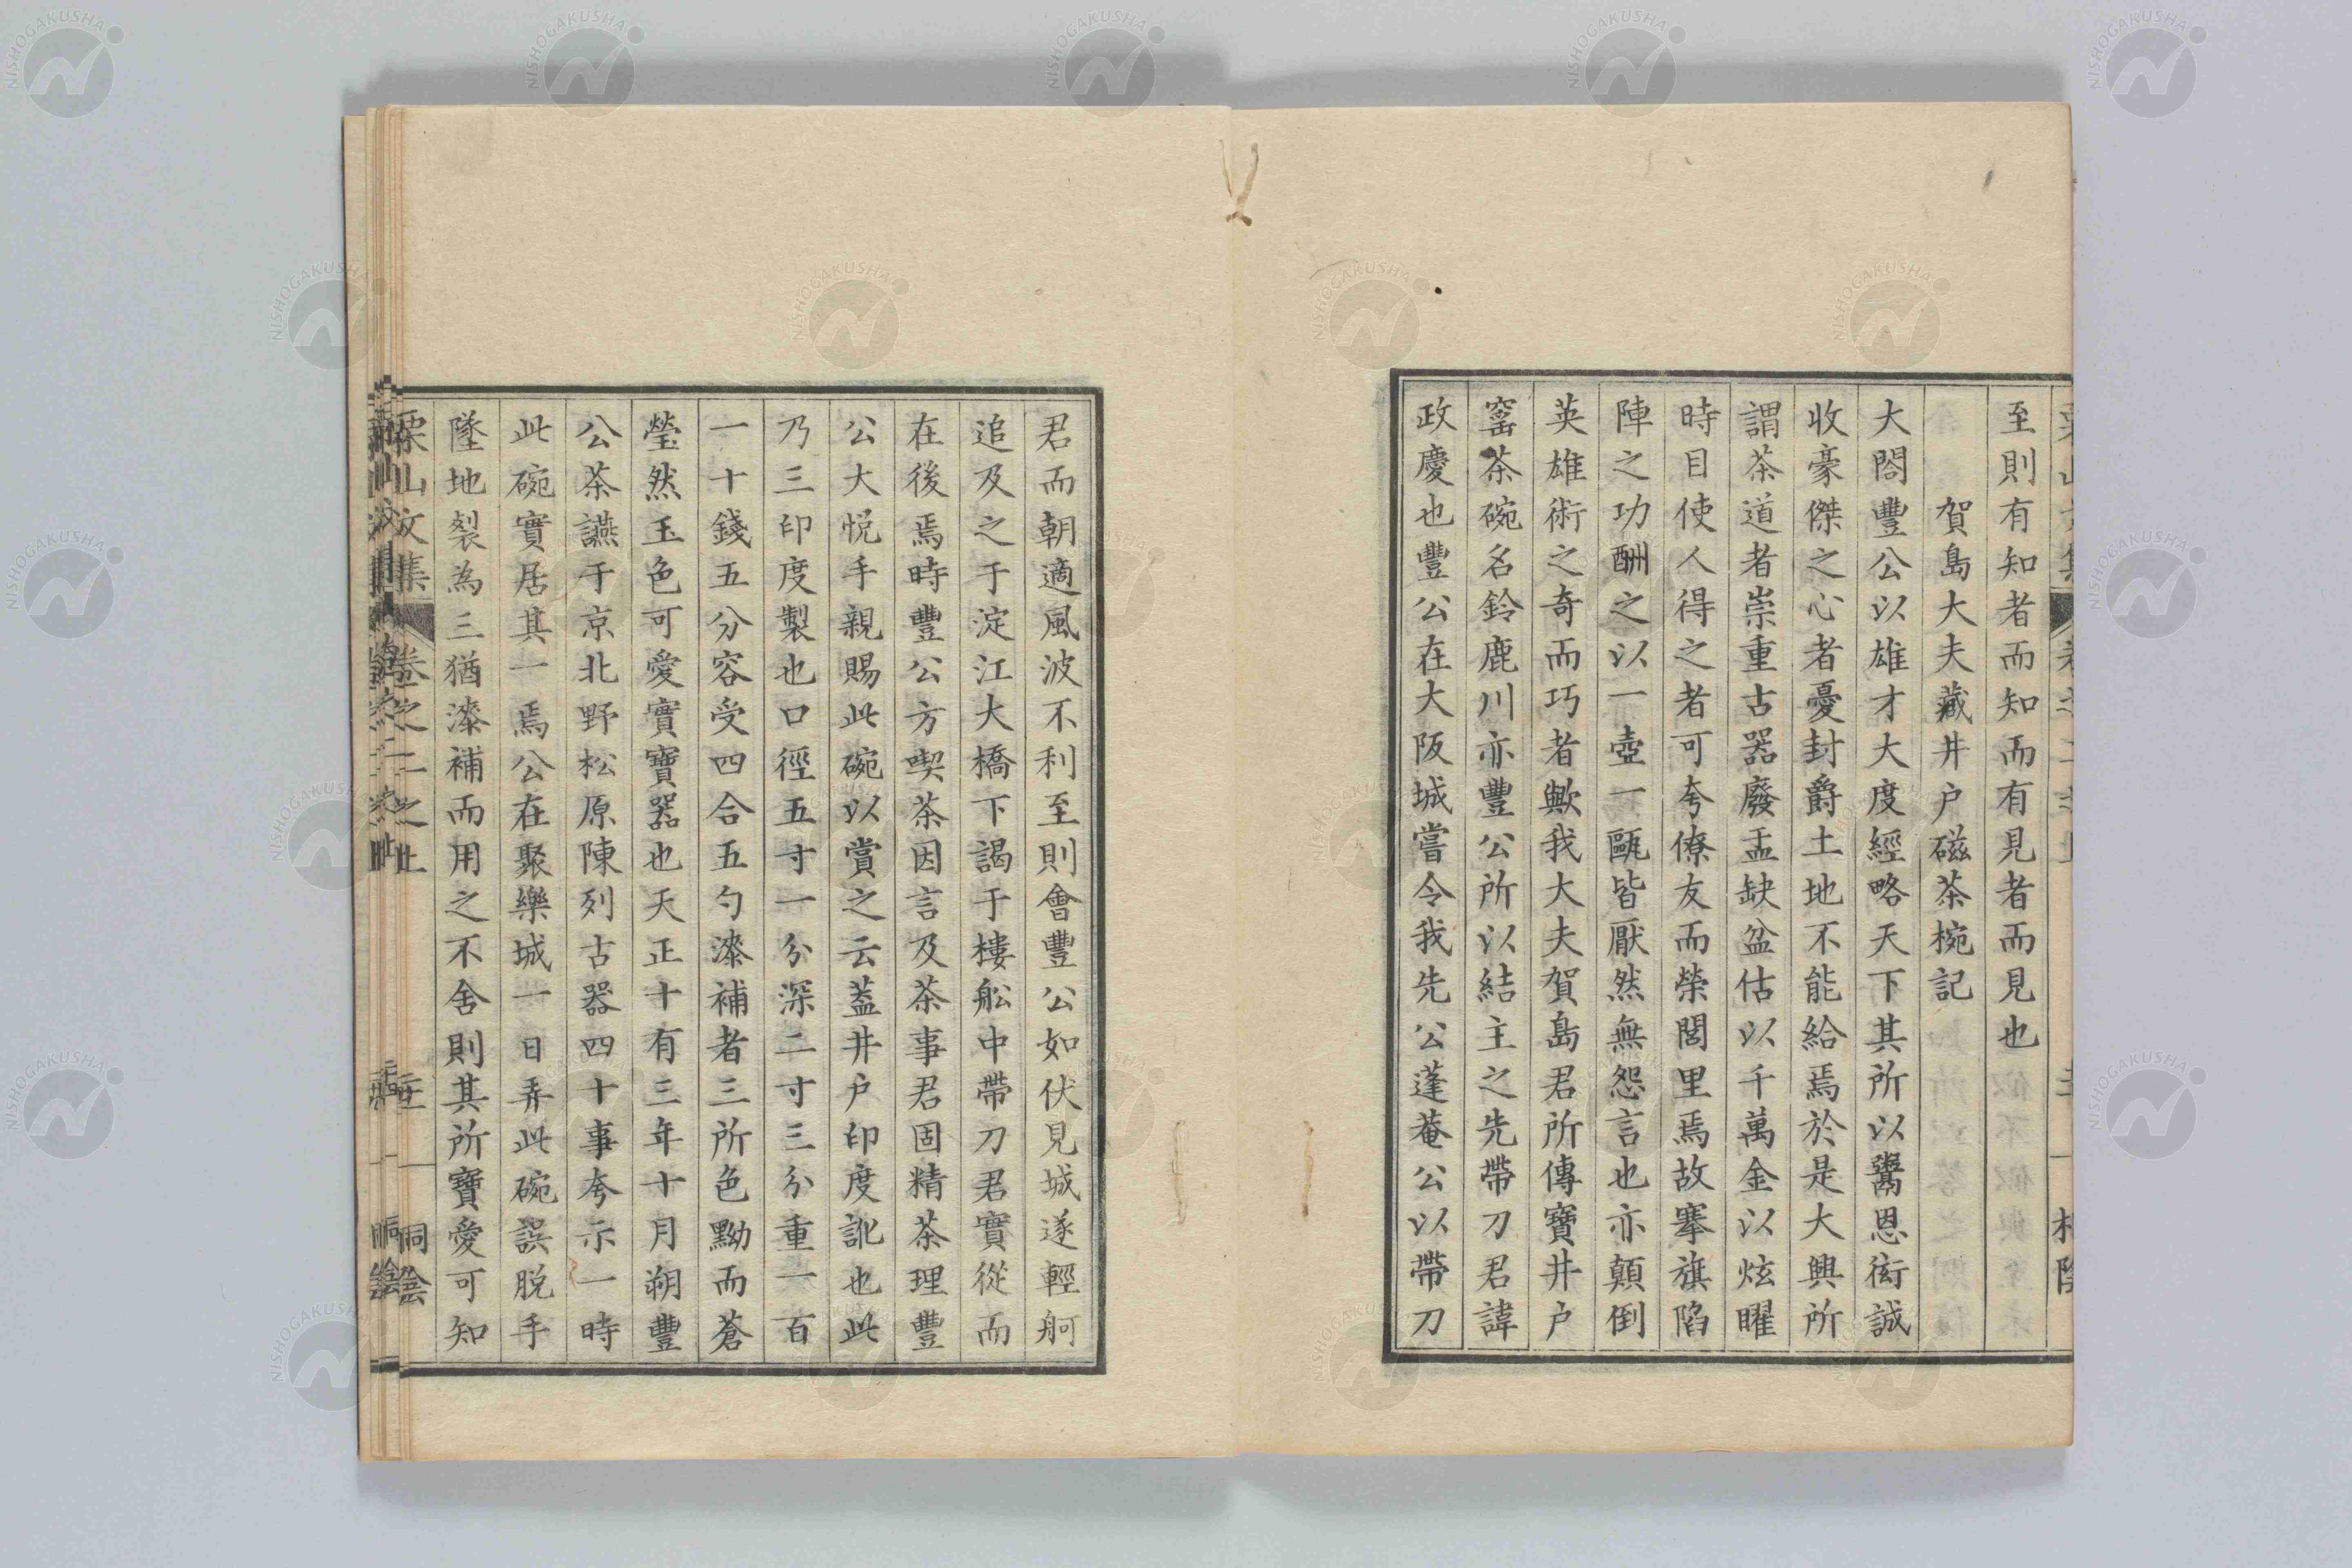 至則有知者而知而有見者而見也
賀島大夫藏井户磁茶椀記
大閤豐公以雄才大度經略天下其所以鬻恩衒誠
收豪傑之心者憂封爵土地不能給焉於是大興所
謂茶道者崇重古器廢盂缺盆估以千萬金以炫曜
時目使人得之者可夸僚友而榮閭里焉故搴旗陷
陣之功酬之以一壺一甌皆厭然無怨言也亦顛倒
英雄術之奇而巧者歟我大夫賀島君所傳寶井户
窰茶碗名鈴鹿川亦豐公所以結主之先帶刀君諱
政慶也豐公在大阪城嘗令我先公蓬菴公以帶刀
君而朝適風波不利至則會豐公如伏見城遂輕舸
追及之于淀江大橋下謁于樓舩中帶刀君實從而
在後焉時豐公方喫茶因言及茶事君固精茶理豐
公大悦手親賜此碗以賞之云蓋井户印度訛也此
乃三印度製也口徑五寸一分深二寸三分重一百
一十錢五分容受四合五勺漆補者三所色黝而蒼
瑩然玉色可愛實寶器也天正十有三年十月朔豐
公茶讌于京北野松原陳列古器四十事夸示一時
此碗實居其一焉公在聚樂城一日弄此碗誤脱手
墜地裂為三猶漆補而用之不舍則其所寶愛可知
栗山文集 卷之二之上
NISHOGAKUSHA